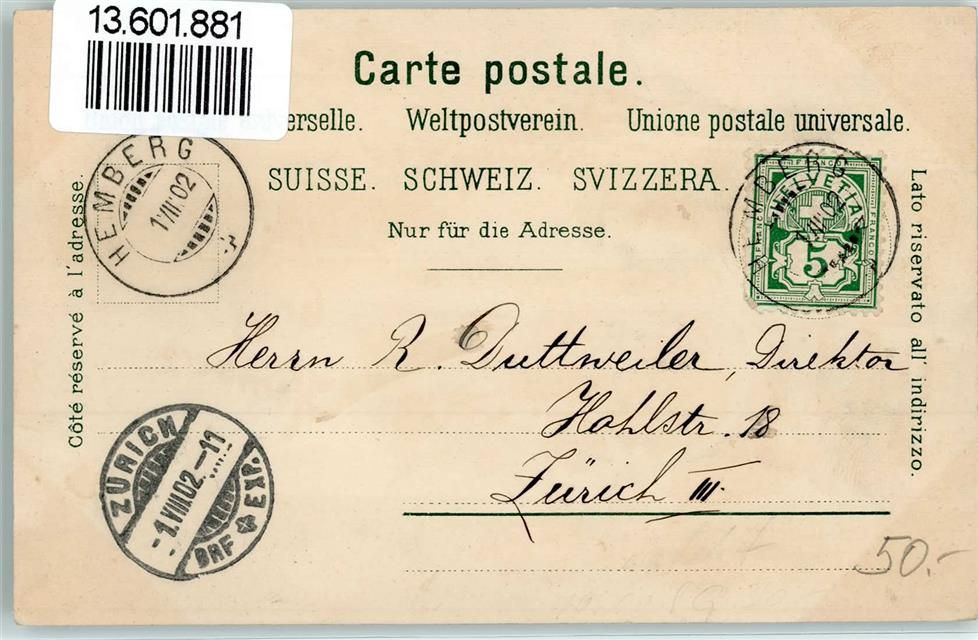 13.601.881
Carte postale.
erselle. Weltpostverein. Unione postale universale.
SUISSE. SCHWEIZ. SVIZZERA.
Nur für die Adresse.
Côté réservé à l'adresse.
Lato riservato all' indirizzo.
HEMBERG
1 VIII 02
HEMBERG
1 VIII 02
FRANCO
HELVETIA
FRANCO
FRANCO
5
Herrn R. Duttweiler, Direktor
Hohlstr. 18
Zürich III.
ZÜRICH
-1.VIII.02.-11
BRF EXP.
50.-